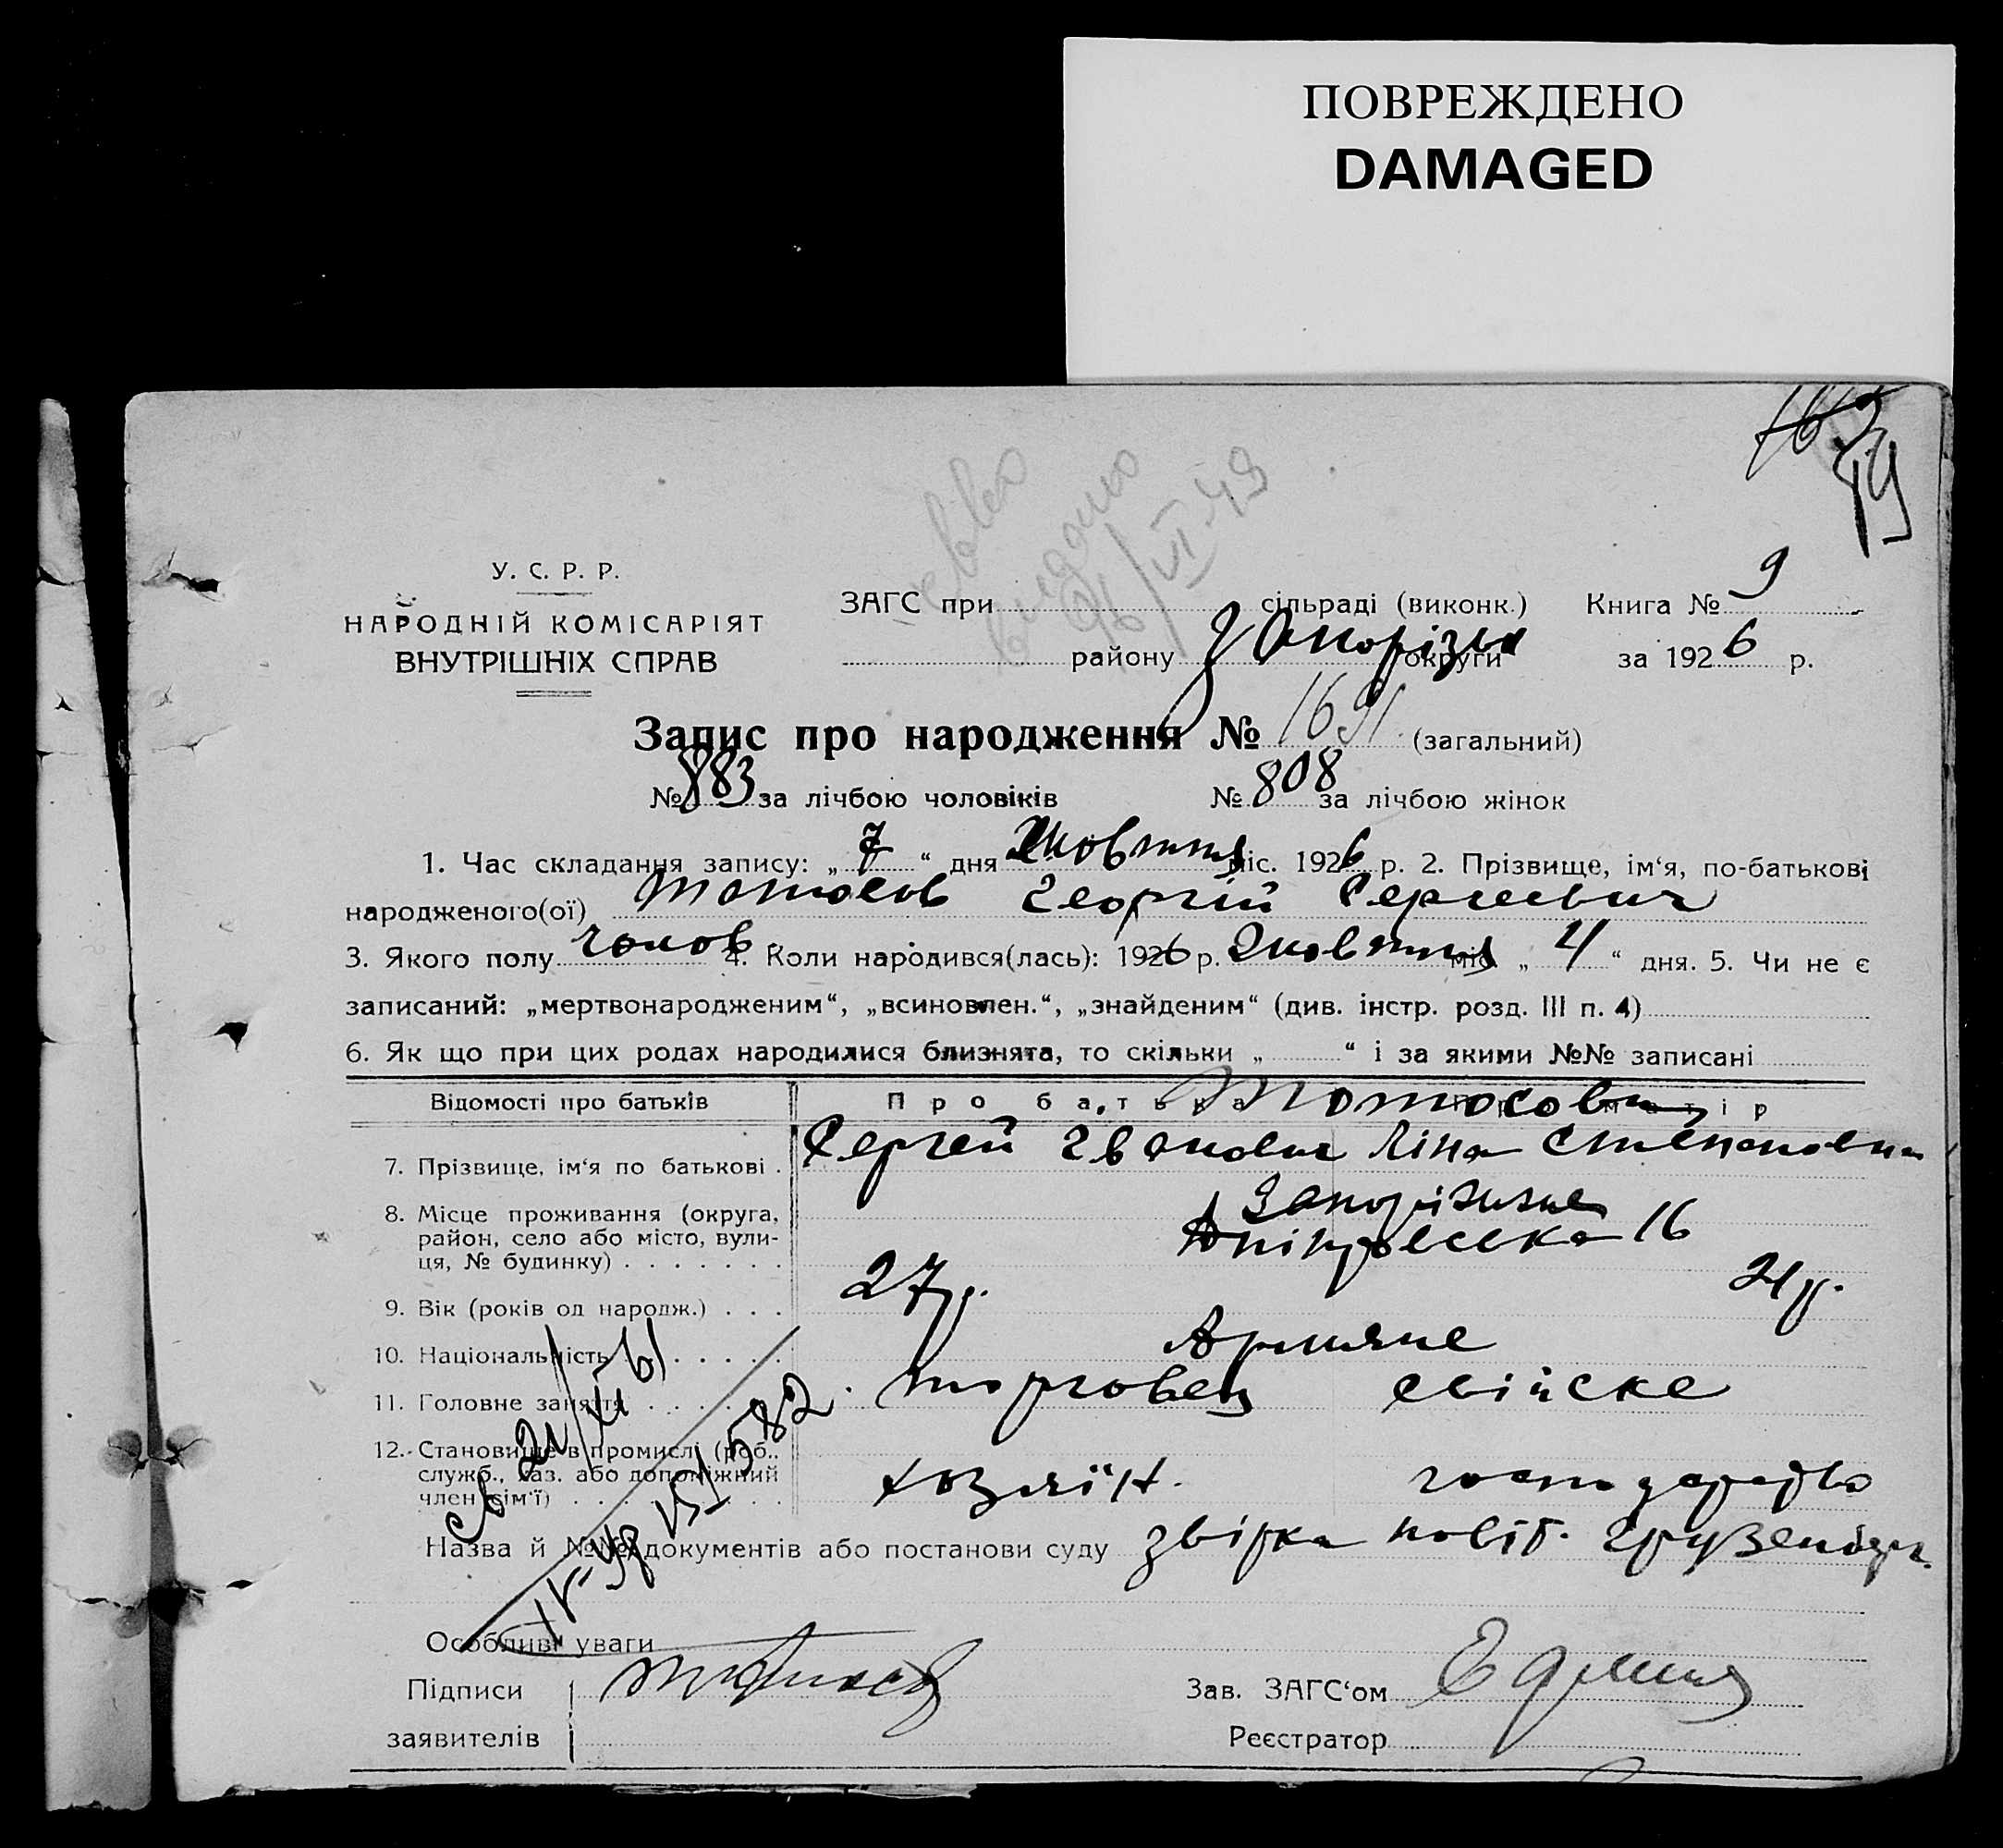 ПОВРЕЖДЕНО
DAMAGED
99
У. С. Р. Р.
НАРОДНІЙ КОМІСАРІЯТ
ВНУТРІШНІХ СПРАВ
видано
VI 49
ЗАГС при сільраді (виконк.) Книга № 9
району Запорізька округи за 1926 р.
Запис про народження № 1691 (загальний)
№ 883 за лічбою чоловіків № 808 за лічбою жінок
1. Час складання запису: „7“ дня Жовтня міс. 1926 р. 2. Прізвище, ім‘я, по-батькові
народженого(ої) Тотосов Георгій Сергеевич
3. Якого полу чолов. 4. Коли народився(лась): 1926 р. Жовтня міс. „4“ дня. 5. Чи не є
записаний: „мертвонародженим“, „всиновлен.“, „знайденим“ (див. інстр. розд. III п. 4)
6. Як що при цих родах народилися близнята, то скільки „ “ і за якими №№ записані
Відомості про батьків Про батька Про матір
Тотосови
7. Прізвище, ім‘я по батькові . Сергей Іванович Ліна Степановна
8. Місце проживання (округа, район, село або місто, вулиця, № будинку) . . . . . . .
Запоріжжє
Дніпровська 16
9. Вік (років од народж.) . . . 27 р. 21 р.
10. Національність . . . . . . Армяне
11. Головне заняття . . . . . . торговец свійске
12. Становище в промислі (роб.,
служб., хаз. або допоміжний
член сім‘ї) . . . . . . . . . хозяїн. господарство
Назва й №№ документів або постанови суду звірка повіт.
Особливі уваги
Підписи
заявителів
Зав. ЗАГС‘ом
Реєстратор